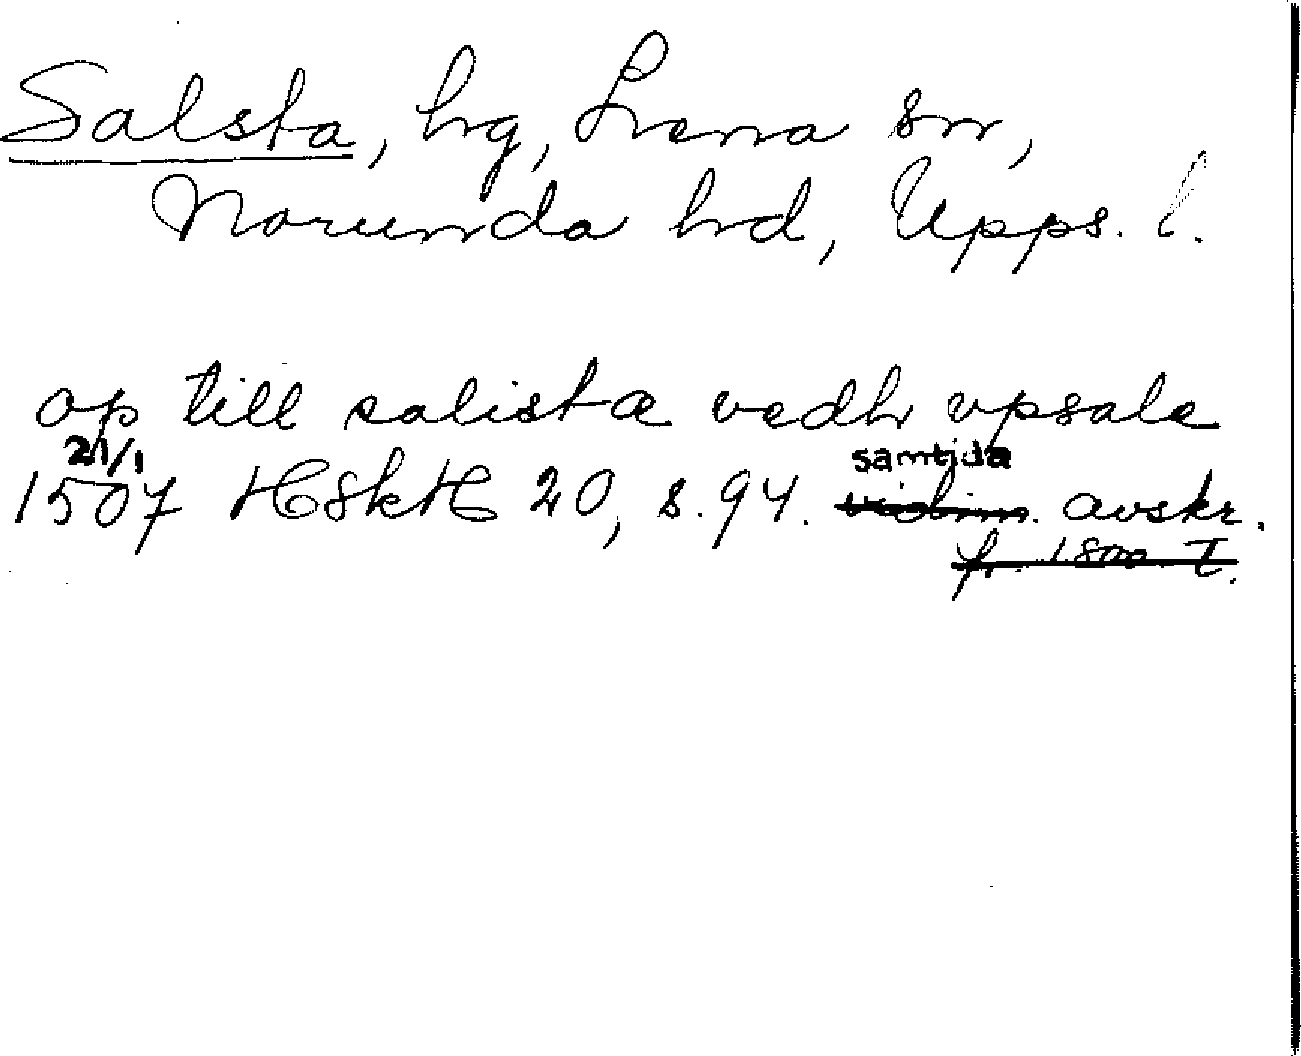 Salsta, hg, Lena sn,
Norunda hd, Upps. l.
op till salista vedh vpsale
21/1 samtida
1507 HSkH 20, s. 94. vidim. avskr.
fr. 1500-t.